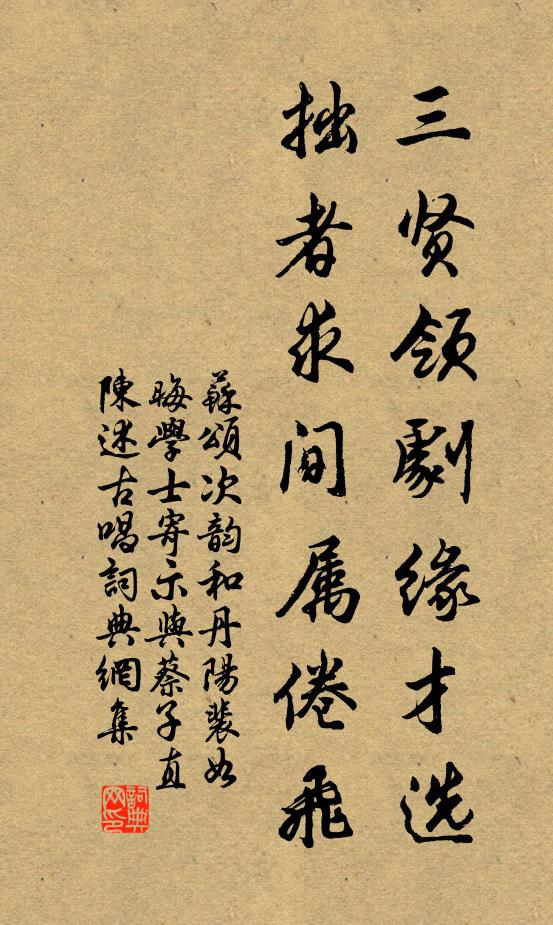 三贤领剧缘才选
拙者求间属倦飛
蘇頌次韵和丹陽裴如
晦學士寄示與蔡子直
陳述古唱詞典網集
詞典网印